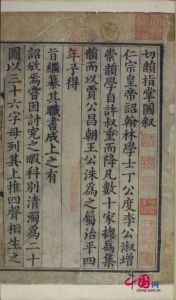 切韻指掌圖叙
仁宗皇帝詔翰林學士丁公度李公淑增
崇韻學自許叔重而降凡數十家總為集
韻而以賈公昌朝王公洙為之屬治平四
年予得
旨繼纂其職書成上之有
詔頒焉嘗因討究之暇科别清濁為二十
圖以三十六字母列其上推四聲相生之